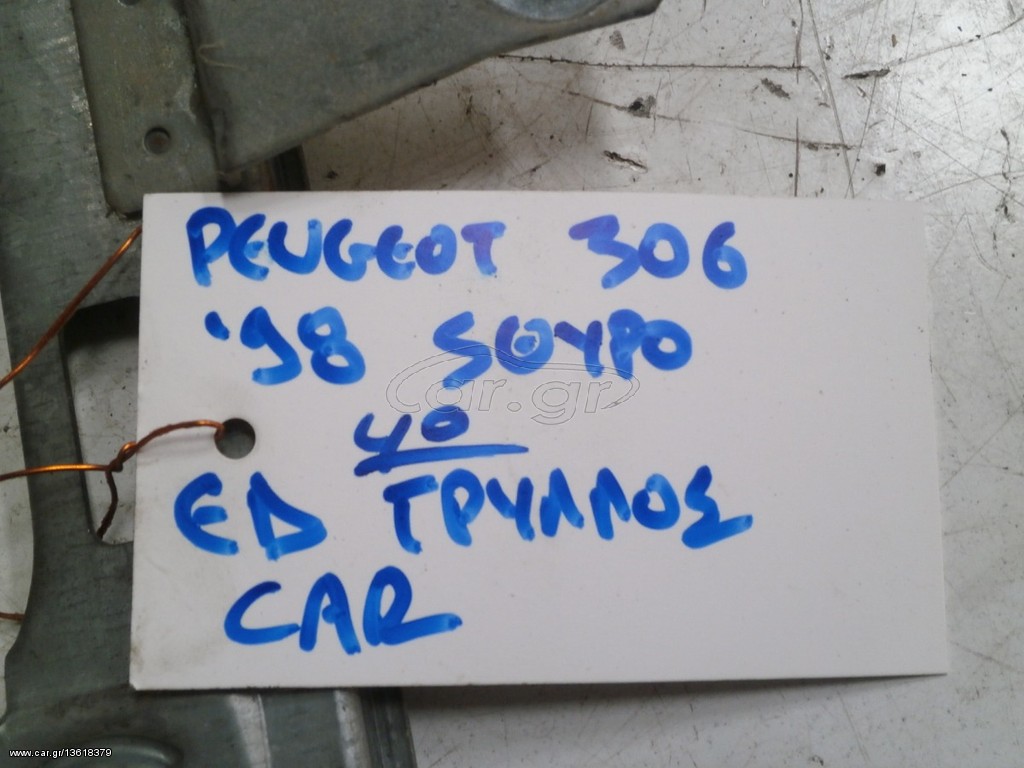 PEUGEOT 306
'98 5ΘΥΡΟ
40
ED ΓΡΥΛΛΟΣ
CAR
car.gr
www.car.gr/13618379